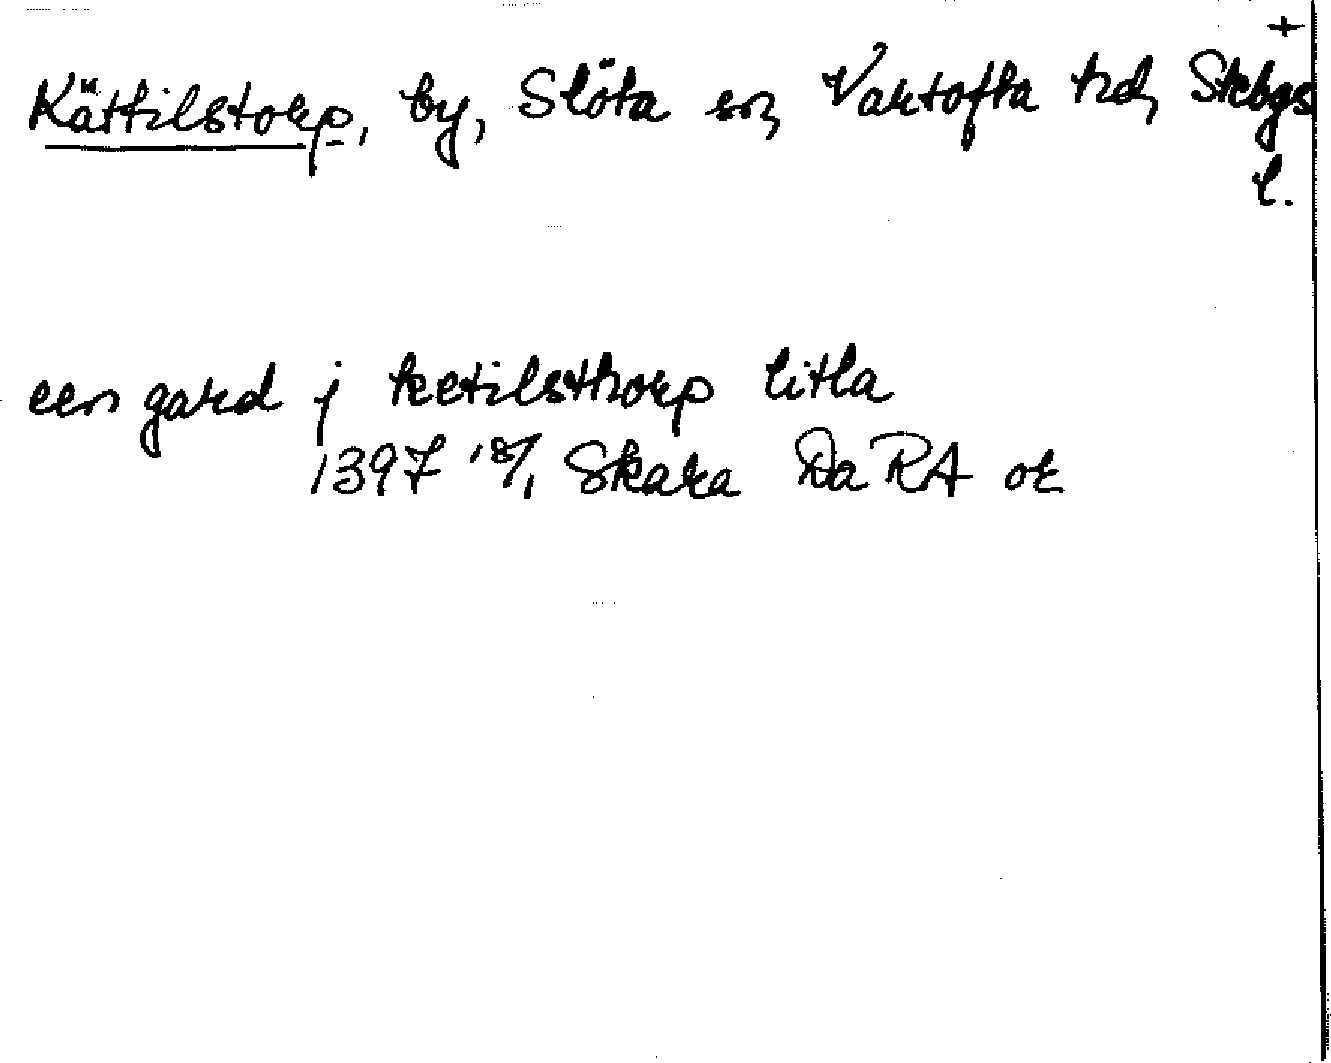 +
Kättilstorp, by, Slöta sn, Vartofta hd, Skbgs
l.
een gard j ketilsthorp litla
1397 18/1 Skara Da RA or